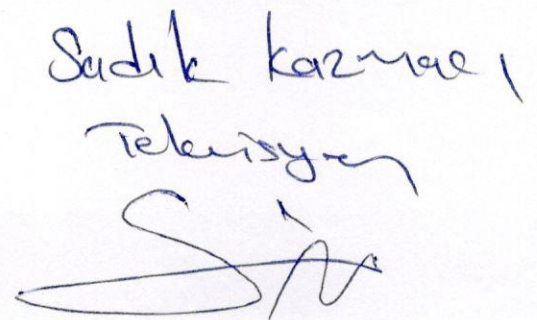 Sadık Kazmacı
Teknisyen